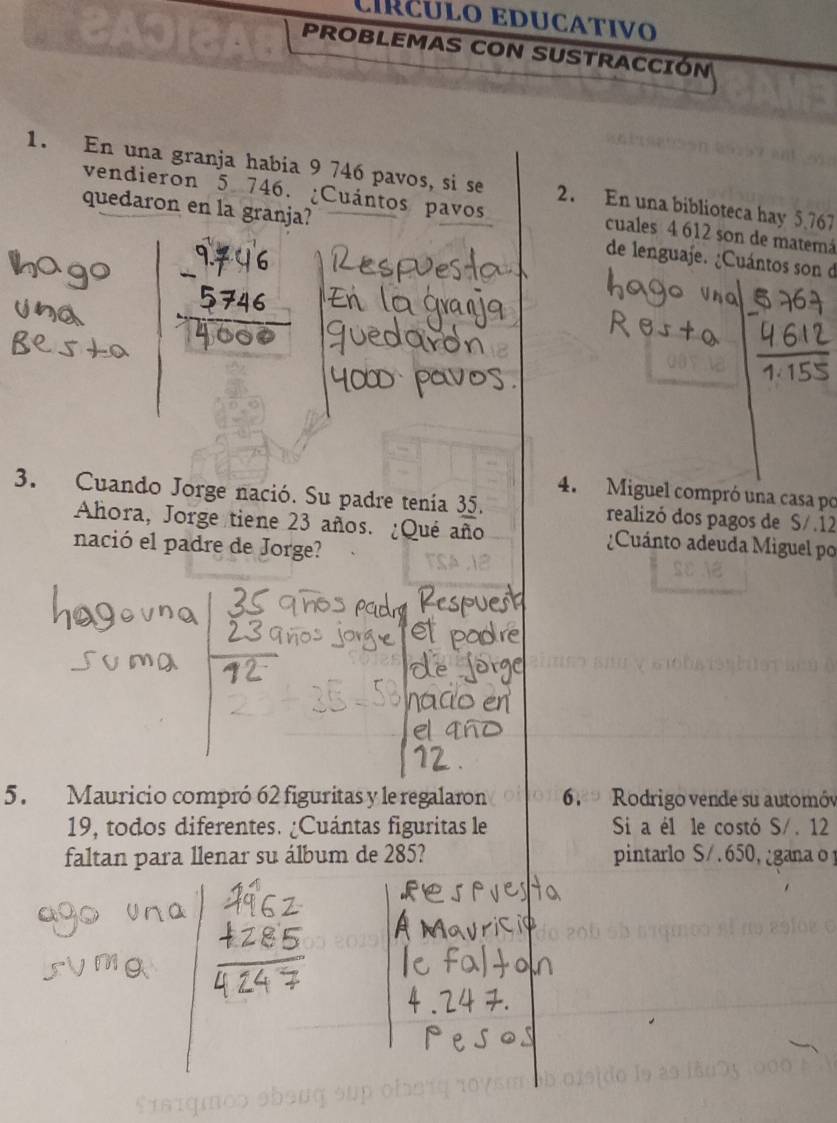 CÍRCULO EDUCATIVO
PROBLEMAS CON SUSTRACCIÓN
1. En una granja había 9 746 pavos, si se
vendieron 5 746. ¿Cuántos pavos
quedaron en la granja?
hago
una
Resta
9.746
- 5746
4000
Respuesta
En la granja
quedarón
4000 pavos.
2. En una biblioteca hay 5 767
cuales 4 612 son de matemá
de lenguaje. ¿Cuántos son d
hago una
Resta
5767
- 4612
1.155
3. Cuando Jorge nació. Su padre tenía 35.
Ahora, Jorge tiene 23 años. ¿Qué año
nació el padre de Jorge?
hago una
suma
35 años padre
23 años jorge
12
Respuesta
el padre
de jorge
nacio en
el año
12.
4. Miguel compró una casa po
realizó dos pagos de S/.12
¿Cuánto adeuda Miguel po
5. Mauricio compró 62 figuritas y le regalaron
19, todos diferentes. ¿Cuántas figuritas le
faltan para llenar su álbum de 285?
ago una
suma
+285
4247
Respuesta
A Mauricio
le faltan
4.247.
Pesos
6. Rodrigo vende su automóv
Si a él le costó S/. 12
pintarlo S/.650, ¿gana o